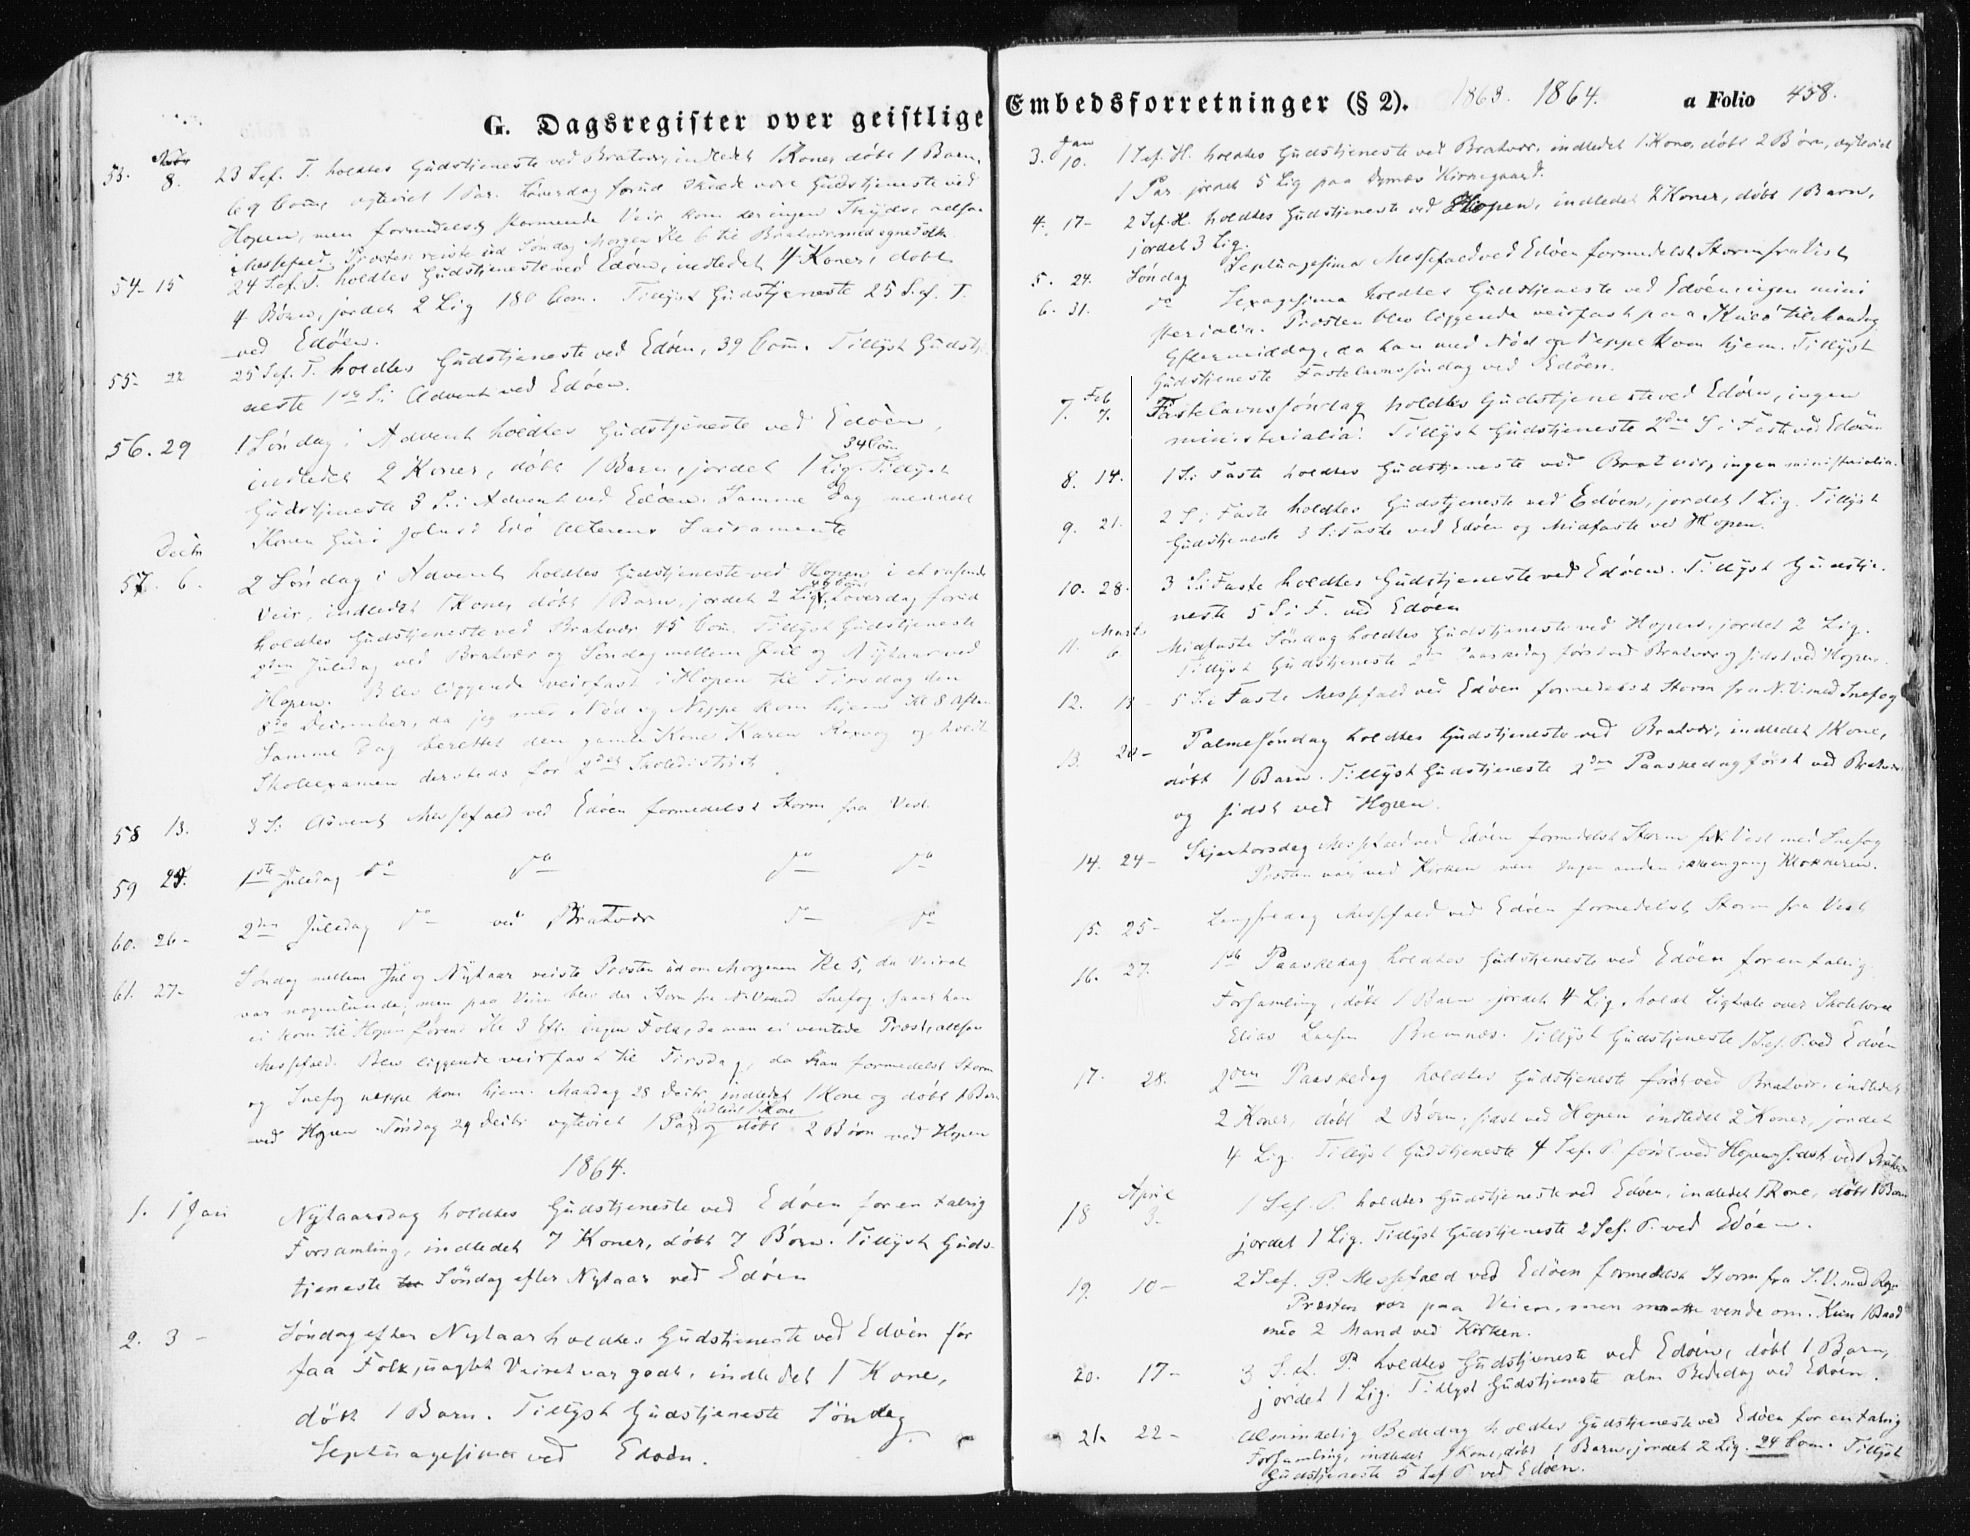 G. Dagsregister over geistlige Embedsforretninger (§ 2). 1863. 1864. a Folio 458.
53. Novbr 8. 23 Sef. T. holdtes Gudstjeneste ved Bratvær, indledet 1 Kone, døbt 1 Barn,
69 Com. vgteviet 1 Par. Løverdag forud skulde være Gudstjeneste ved
Hopen, men formedelst stormende Veir kom der ingen Skyds, altsaa
Messefald. Provsten reiste ud Søndag Morgen Kl 6 til Bratvær med egne Folk.
54 - 15 24 Sef. T. holdtes Gudstjeneste ved Edøen, indledet 4 Koner, døbt
4 Børn, jordet 2 Lig 180 Com. Tillyst Gudstjeneste 25 S. ef. T.
ved Edöen.
55 - 22 25 Sef. T. holdtes Gudstjeneste ved Edøen, 39 Com. Tillyst Gudstje
neste 1ste S. i Advent ved Edøen.
56. 29 1 Søndag i Advent holdtes Gudstjeneste ved Edøen,
34 Com.
indledet 2 Koner, døbt 1 Barn, jordet 1 Lig. Tillyst
Gudstjeneste 3 S. i Advent ved Edøen. Samme Dag meddelt
Konen Guri Edø Alterens Sacramente
Decbr
57. 6. 2 Søndag i Advent holdtes Gudstjeneste ved Hopen i et rasende
Veir, indledet 1 Kone, døbt 1 Barn, jordet 2 Lig. Løverdag forud
holdtes Gudstjeneste ved Bratvær, 45 Com. Tillyst Gudstjeneste
2den Juledag ved Bratvær og Søndag mellem Juul og Nytaar ved
Hopen. Blev liggende veirfast i Hopen til Tirsdag den
8de December, da jeg med Nød og Neppe kom hjem Kl 8 Aften.
Samme Dag berettet den gamle Kone Karen og holdt
Skoleexamen dersteds for 2det Skoledistrict.
58 13. 3 S. i Advent Messefald ved Edøen formedelst Storm fra Vest.
59 25. 1ste Juledag do do do do
60. 26 - 2den Juledag do ved Bratvær do do
61. 27 - Søndag mellem Jul og Nytaar reiste Provsten ud om Morgenen Kl 5, da Veiret
var nogenlunde, men paa Veien blev der Storm fra N.V. med Snefog, saa at han
ei kom til Hopen førend Kl 3 Eft. ingen Folk, da man ei ventede Præst, altsaa
Messefald. Blev liggende veirfast til Tirsdag, da han formedelst Storm
og Snefog neppe kom hjem. Mandag 28 Decbr. indledet 1 Kone og døbt 1 Barn
indledt 1 Kone
ved Hopen Tirsdag 29 Decbr. vgteviet 1 Par, og døbt 2 Børn ved Hopen
1864.
1. 1 Jan Nytaarsdag holdtes Gudstjeneste ved Edøen for en talrig
Forsamling, indledet 7 Koner, døbt 7 Børn. Tillyst Guds-
tjeneste Söndag efter Nytaar ved Edøen
2. 3 - Søndag efter Nytaar holdtes Gudstjeneste ved Edøen for
faa Folk, uagtet Veiret var godt, indledet 1 Kone,
døbt 1 Barn. Tillyst Gudstjeneste Søndag
Septuagesima ved Edøen.
3. Jan 10. 1 Sef. H. holdtes Gudstjeneste ved Bratvær, indledet 1 Kone, døbt 2 Børn, vgteviet
1 Par jordet 5 Lig paa Kirkegaard.
4. 17 - 2 S. ef. H. holdtes Gudstjeneste ved Hopen, indledet 2 Koner, døbt 1 Barn,
jordet 3 Lig.
5. 24. Søndag Septuagesima Messefald ved Edøen formedelst Storm fra Vest
6. 31. do Sexagesima holdtes Gudstjeneste ved Edøen ingen mini
sterialia. Provsten blev liggende veirfast paa Kulø til Mandag
Eftermiddag, da han med Nød og Neppe kom hjem. Tillyst
Gudstjeneste Fastelavnssøndag ved Edøen.
7. Feb 7. Fastelavnssøndag holdtes Gudstjeneste ved Edøen, ingen
ministerialia. Tillyst Gudstjeneste 2den S. i Faste ved Edøen
8. 14. 1 S. i Faste holdtes Gudstjeneste ved Bratvær, ingen ministerialia.
9. 21. 2 S. i Faste holdtes Gudstjeneste ved Edøen, jordet 1 Lig. Tillyst
Gudstjeneste 3 S. i Faste ved Edøen og Midfaste ved Hopen.
10. 28. 3 S. i Faste holdtes Gudstjeneste ved Edøen. Tillyst Gudstje-
neste 5 S. i F. ved Edøen
11. Marts 6 Midfaste Søndag holdtes Gudstjeneste ved Hopen, jordet 2 Lig.
Tillyst Gudstjeneste 2den Paaskedag først ved Bratvær og sidst ved Hopen.
12. 13 - 5 S. i Faste Messefald ved Edøen formedelst Storm fra N.V. med Snefog
13. 20 - Palmesøndag holdtes Gudstjeneste ved Bratvær, indledet 1 Kone,
døbt 1 Barn. Tillyst Gudstjeneste 2den Paaskedag først ved Bratvær
og sidst ved Hopen.
14. 24 - Skjærtorsdag Messefald ved Edøen formedelst Storm fra Vest med Snefog
Provsten var ved Kirken men ingen anden ikke engang Klokkeren.
15. 25 - Langfredag Messefald ved Edøen formedelst Storm fra Vest
16. 27. 1ste Paaskedag holdtes Gudstjeneste ved Edöen for en talrig
Forsamling, døbt 1 Barn jordet 4 Lig, holdt Ligtale over Skolelærer
Elias Larsen Bremnæs. Tillyst Gudstjeneste 1 S. ef. P. ved Edøen
17. 28. 2den Paaskedag holdtes Gudstjeneste først ved Bratvær, indledet
2 Koner, døbt 2 Børn, sidst ved Hopen indledet 2 Koner, jordet
4 Lig. Tillyst Gudstjeneste 4 S. ef. P. først ved Hopen og sidst ved Bratvær
18 April 3. 1 S. ef. P. holdtes Gudstjeneste ved Edøen, indledet 1 Kone, døbt 1 Barn
jordet 1 Lig. Tillyst Gudstjeneste 2 S. ef. P. ved Edøen.
19. 10 - 2 S. ef. P. Messefald ved Edøen formedelst Storm fra S.V. med Regn
Præsten var paa Veien, men maatte vende om. Kun 1 Baad
med 2 Mand ved Kirken.
20. 17 - 3 S. ef. P. holdtes Gudstjeneste ved Edøen, døbt 1 Barn,
jordet 1 Lig. Tillyst Gudstjeneste alm Bededag ved Edøen.
21. 22 - Almindelig Bededag holdtes Gudstjeneste ved Edøen for en talrig
Forsamling, indledet 1 Kone, døbt 1 Barn, jordet 2 Lig. 24 Com. Tillyst
Gudstjeneste 5 S. ef. P. ved Edøen.